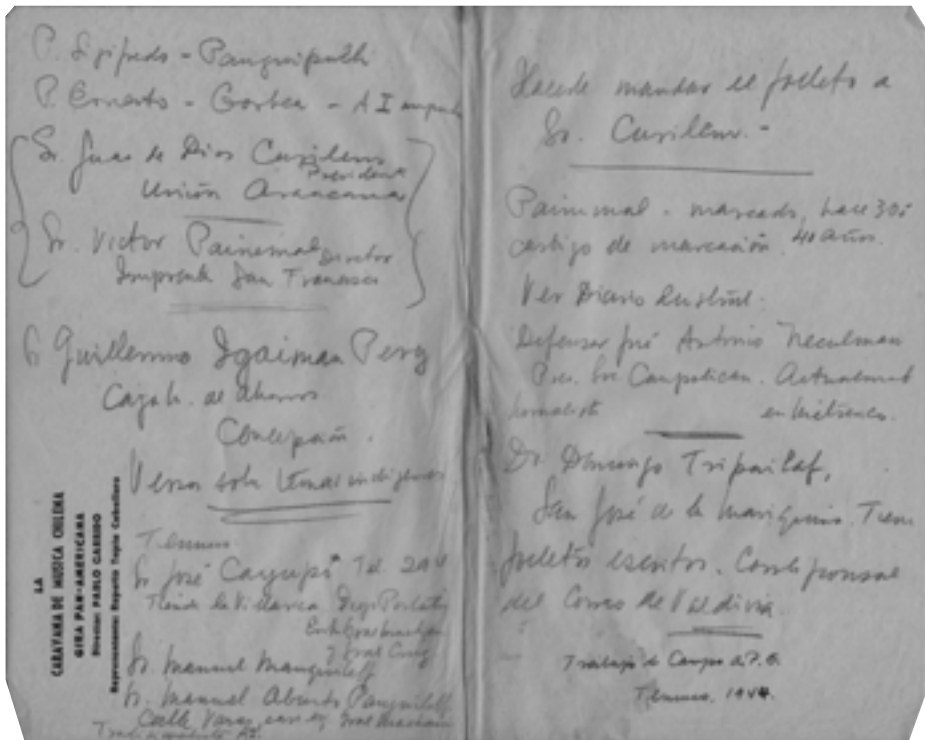 P. Sigifredo - Panguipulli
P. Ernesto - Gorbea - A I
Sr. Juan de Dios Curilem
Presidente
Unión Araucana
Sr. Victor Painemal Director
Imprenta San Francisco
Sr Guillermo Igaiman
Caja de Ahorros
Concepción.
Versos sobre temas indígenas
Temuco
Sr José Cayupi Tel.
Tienda la Villarica Diego Portales
y Gral Cruz
Sr. Manuel Manquilef
Sr. Manuel Aburto Panguilef
Calle Varas
LA
CARAVANA DE MUSICA CHILENA
GIRA PAN-AMERICANA
Director: PABLO GARRIDO
Representante: Ruperto Tapia Caballero
Hacerle mandar el folleto a
Sr. Curilem. -
Painemal. marcado, hace 30 ó
castigo de marcación. 40 años.
Ver Diario Austral.
Defensor José Antonio Neculman
Pres. Soc Caupolican. Actualmente
Dr. Domingo Tripailaf,
San José de la Mariquina. Tiene
folletos escritos. Corresponsal
del Correo de Valdivia
Trabajo de Campo de P. G.
Temuco. 1944.